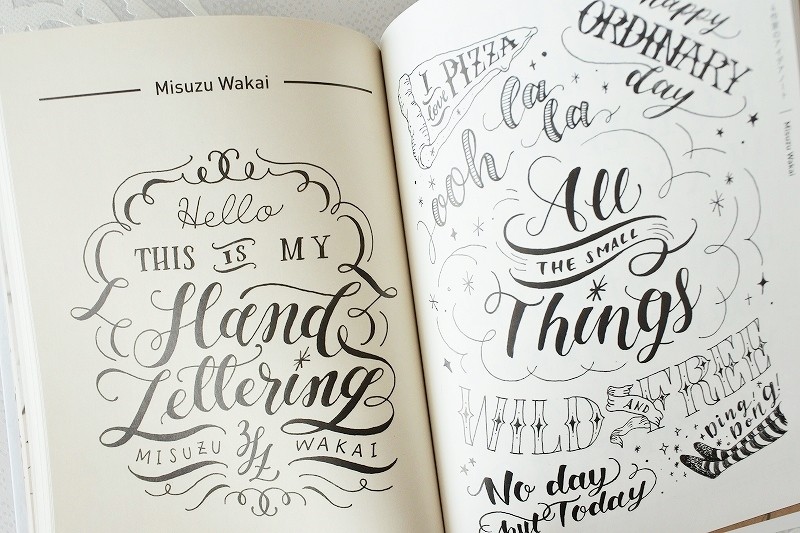 Misuzu Wakai
Hello
THIS IS MY
Hand
Lettering
MISUZU WAKAI
happy
ORDINARY
day
I love PIZZA
ooh la la
All
THE SMALL
Things
WILD AND FREE
Ding
Dong!
No day
but Today
Misuzu Wakai